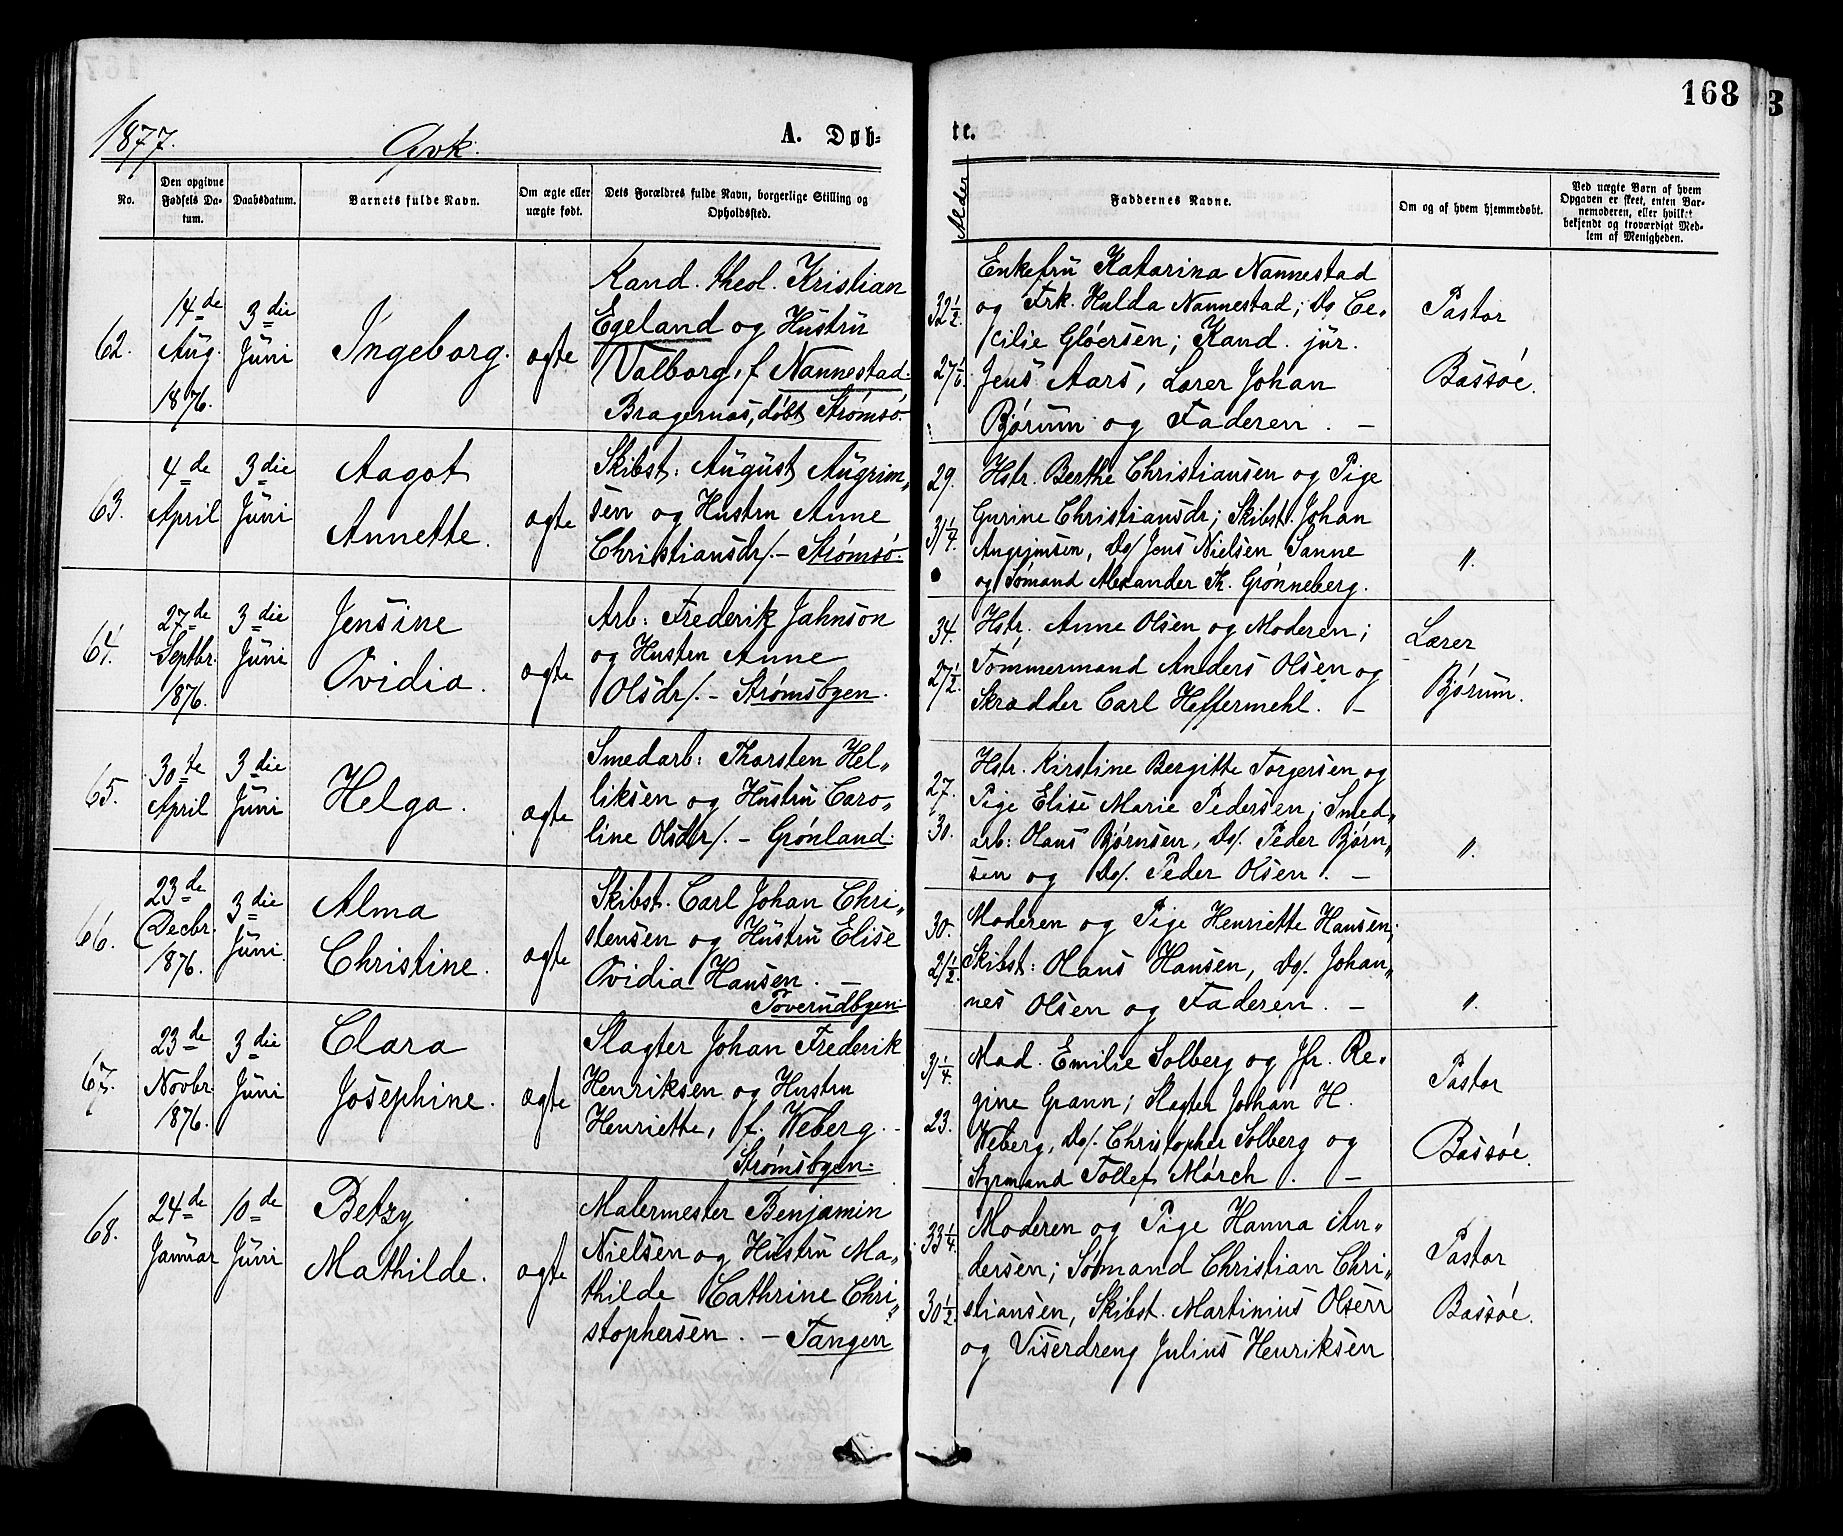 168
3
1877.
Qvk.
A. Døb-
te.
No.
Den opgivne Fødsels Da-
tum.
Daabsdatum.
Barnets fulde Navn.
Om ægte eller
uægte født.
Dets Forældres fulde Navn, borgerlige Stilling og
Opholdssted.
Alder
Faddernes Navne.
Om og af hvem hjemmedøbt.
Ved uægte Børn af hvem
Opgaven er skeet, enten Bar-
nemoderen, eller hvilket
bekjendt og troværdigt Med-
lem af Menigheden.
62.
14de
Aug.
1876.
3die
Juni
Ingeborg.
ægte
Kand. theol. Kristian
Egeland og Hustru
Valborg, f. Nannestad.
Bragernæs, døbt Strømsø.
32 1/2.
27 1/6
Enkefru Katarina Nannestad
og Frk. Hulda Nannestad; Do Ce-
cilie Gløersen; Kand. jur.
Jens Aars, Lærer Johan
Bjørum og Faderen. —
Pastor
Bassøe.
63.
4de
April
3die
Juni
Aagot
Annette.
ægte
Skibst: August Augrim„
sen og Hustru Anne
Christiansdr/. – Strømsø.
29.
31 1/4.
Hstr. Berthe Christiansen og Pige
Gurine Christiansdr; Skibst. Johan
Angrimsen, Do/. Jens Nielsen Sanne
og Sømand Alexander Th. Grønneberg.
„.
64.
27de
Septbr.
1876.
3die
Juni
Jensine
Ovidia.
ægte
Arb: Frederik Jahnson
og Husten Anne
Olsdr/. – Strømsbyen.
34.
27 1/2.
Hstr. Anne Olsen og Moderen;
Tømmermand Anders Olsen og
Skrædder Carl Heffermehl. —
Lærer
Bjørum.
65.
30te
April
3die
Juni
Helga.
ægte
Smedarb: Thorsten Hel„
liksen og Hustru Caro„
line Olsdtr/. – Grønland.
27.
30.
Hstr. Kirstine Bergitte Torgersen og
Pige Elise Marie Pedersen; Smed„
arb: Hans Bjørnsen, Do/. Peder Bjørn„
sen og Do/. Peder Olsen. —
„.
66.
23de
Decbr.
1876.
3die
Juni.
Alma
Christine.
ægte
Skibst. Carl Johan Chri„
stensen og Hustru Elise
Ovidia Hansen. —
Toverudbyen.
30.
21 1/2.
Moderen og Pige Henriette Hansen;
Skibst: Hans Hansen, Do/. Johan„
nes Olsen og Faderen. —
„.
67.
23de
Novbr.
1876.
3die
Juni
Clara
Josephine.
ægte
Slagter Johan Frederik
Henriksen og Hustru
Henriette, f. Weberg. –
Strømsbyen.
31 1/4
23.
Mad. Emilie Solberg og Jfr. Re-
gine Grann; Slagter Johan H.
Weberg, Do/. Christopher Solberg og
Styrmand Tollef Mørch. —
Pastor
Bassøe.
68.
24de
Januar
10de
Juni
Betzy
Mathilde.
ægte
Malermester Benjamin
Nielsen og Hustru Ma„
thilde Cathrine Chri„
stophersen. – Tangen
33 1/4.
30 1/2
Moderen og Pige Hanna An„
dersen; Sømand Christian Chri„
stiansen, Skibst. Martinius Olsen
og Viserdreng Julius Henriksen
Pastor
Bassøe.